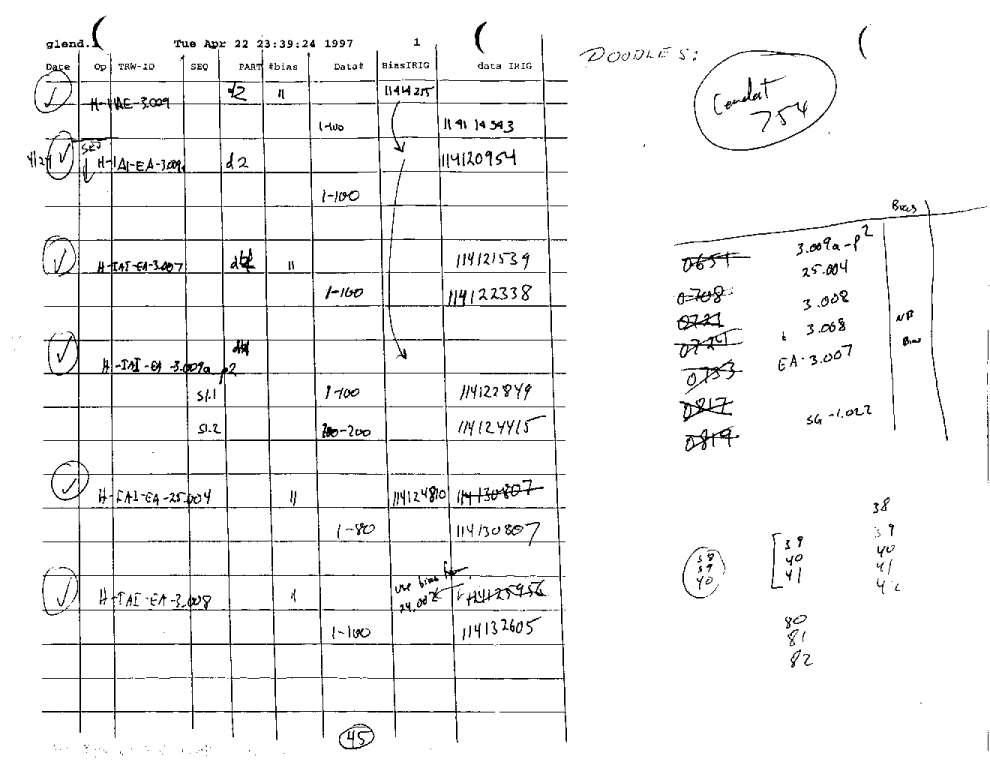 Tue Apr 22 23:39:24 1997 1
Date Op TRW-ID SEQ PART #bias Data# BiasIRIG data IRIG
d2 11 11414215
1-100 114114343
d2 114120954
1-100
H-IAI-EA-3.007 11 114121539
1-100 114122338
H-IAI-EA-3.009a p2
S1.1 1-100 114122849
S1.2 100-200 114124415
H-IAI-EA-25.004 11 114124810 114130807
1-80 114130807
H-IAI-EA-3.008 use bias from 114125956
1-100 114132605
45
DOODLES:
754
Bias
0654 3.009a-p2
0708 25.004
0721 3.008
0724 3.008
0733 EA-3.007
0817
0819 SG-1.022
38
39 39
40 40
41 41
42
38
39
40
80
81
82